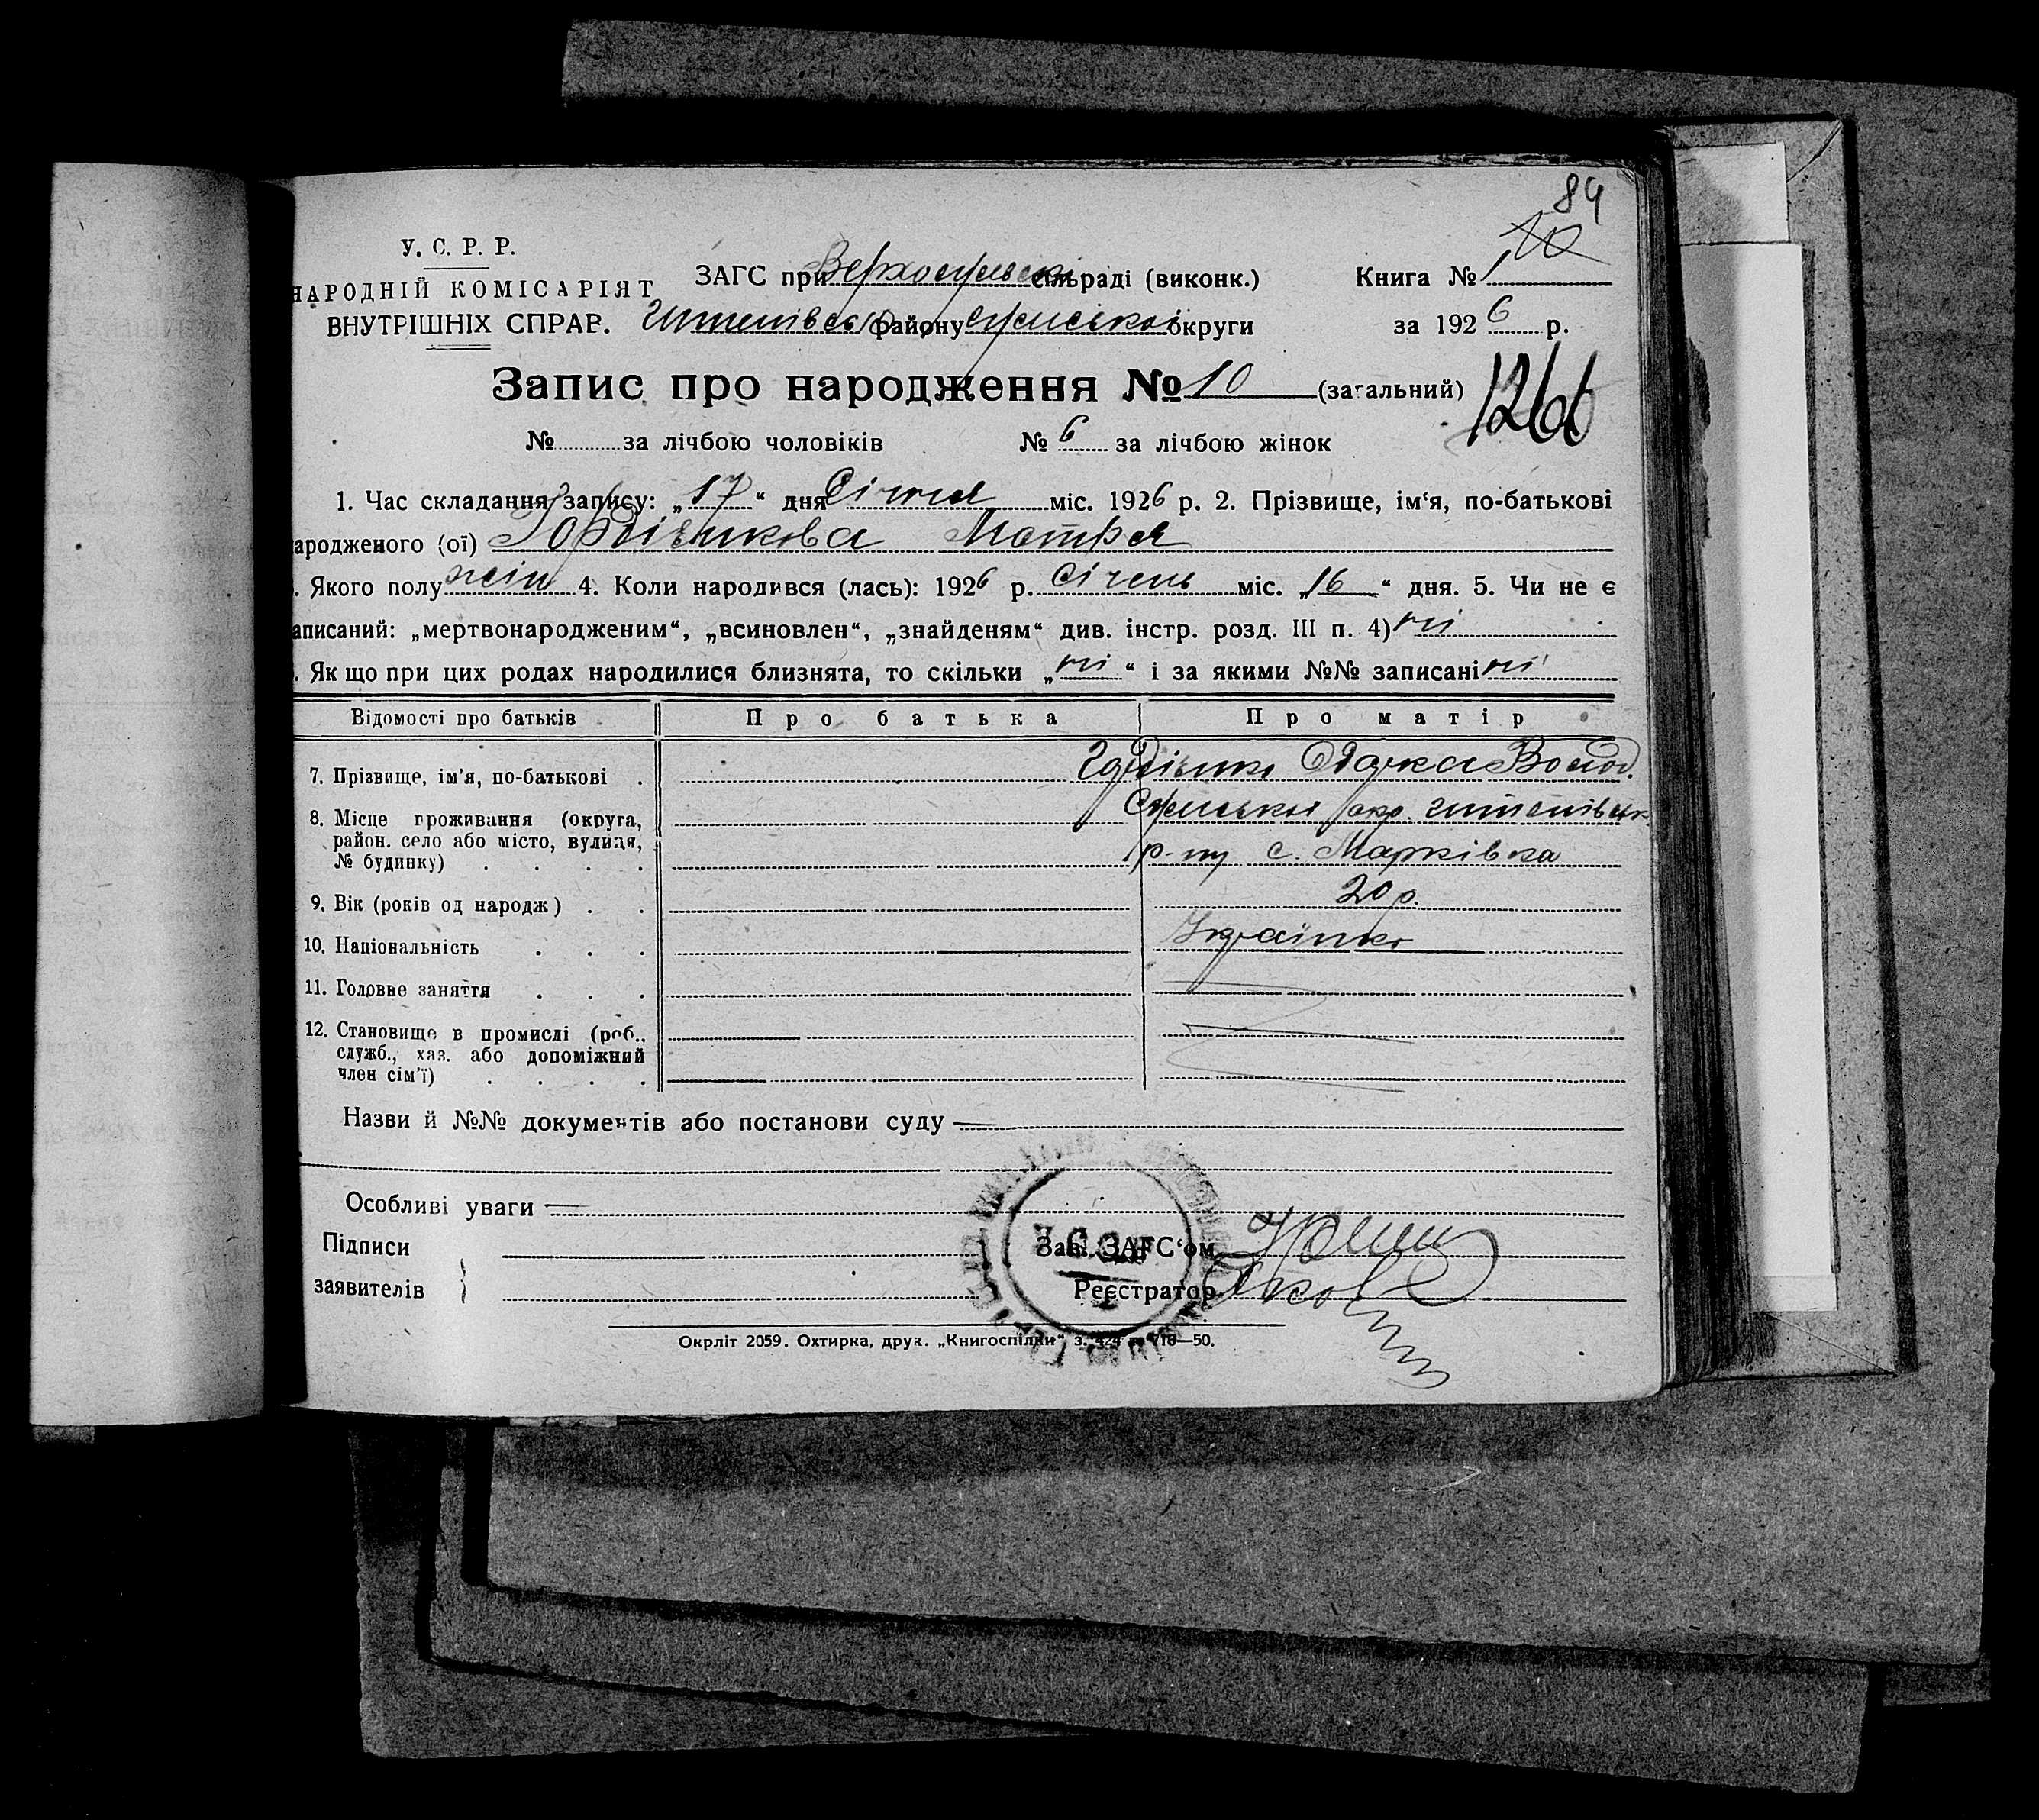 84
У. С. Р. Р.
НАРОДНІЙ КОМІСАРІЯТ
ВНУТРІШНІХ СПРАВ.
ЗАГС при Верхосульській сільраді (виконк.)
Книга № 1
району Сумської округи
за 1926 р.
Запис про народження № 10 (загальний)
№ за лічбою чоловіків № 6 за лічбою жінок
1. Час складання запису: „17“ дня Січня міс. 1926 р. 2. Прізвище, ім‘я, по-батькові
ародженого (ої) Гордієнкова Мотря
. Якого полу жін 4. Коли народився (лась): 1926 р. Січень міс. „16“ дня. 5. Чи не є
аписаний: „мертвонародженим“, „всиновлен“, „знайденям“ див. інстр. розд. III п. 4) ні
. Як що при цих родах народилися близнята, то скільки „ні“ і за якими №№ записані ні
Відомості про батьків
Про батька
Про матір
7. Прізвище, ім‘я, по-батькові .
Гордієнко Одарка Волод.
8. Місце проживання (округа, район. село або місто, вулиця, № будинку) . . . .
Сумської окр.
р-ну с. Марківка
9. Вік (років од народж) . .
20 р.
10. Національність . . .
Українка
11. Головне заняття . . .
12. Становище в промислі (роб., служб., хаз. або допоміжний член сім‘ї) . . . .
Назви й №№ документів або постанови суду
Особливі уваги
Підписи
заявителів
Зав. ЗАГС‘ом
Реєстратор
Окрліт 2059. Охтирка, друк. „Книгоспілки“ з. 424 —50.